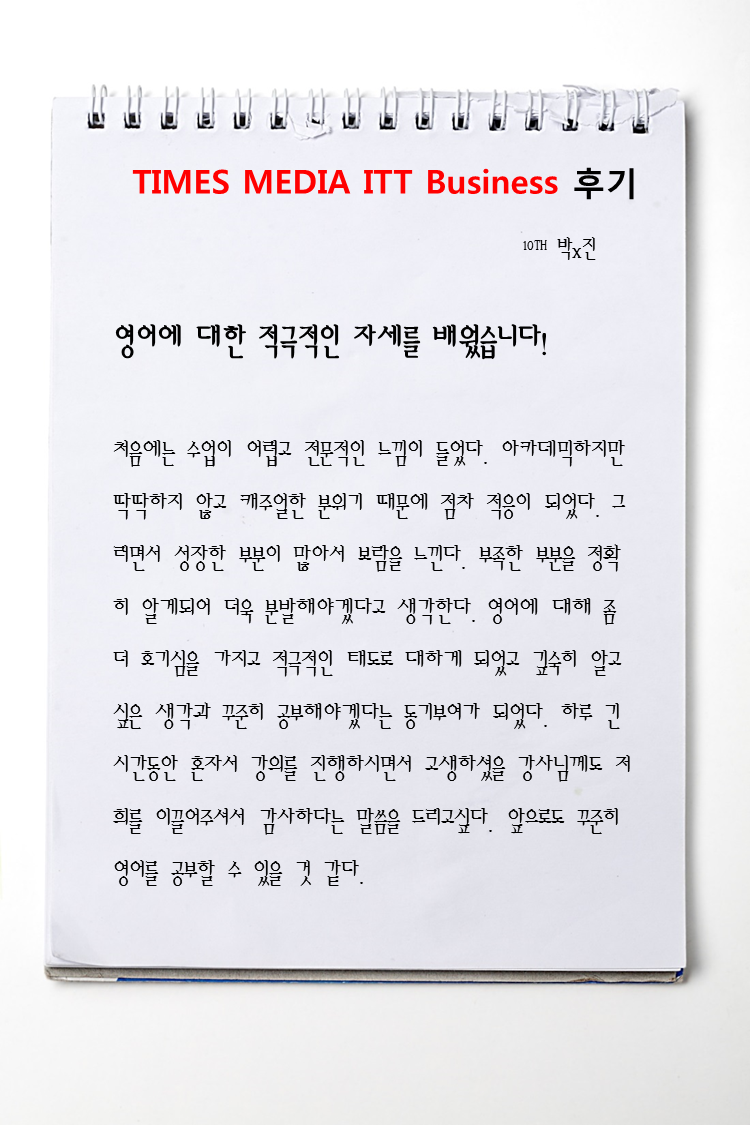 TIMES MEDIA ITT Business 후기
10TH 박x진
영어에 대한 적극적인 자세를 배웠습니다!
처음에는 수업이 어렵고 전문적인 느낌이 들었다. 아카데믹하지만
딱딱하지 않고 캐주얼한 분위기 때문에 점차 적응이 되었다. 그
러면서 성장한 부분이 많아서 보람을 느낀다. 부족한 부분을 정확
히 알게되어 더욱 분발해야겠다고 생각한다. 영어에 대해 좀
더 호기심을 가지고 적극적인 태도로 대하게 되었고 깊숙히 알고
싶은 생각과 꾸준히 공부해야겠다는 동기부여가 되었다. 하루 긴
시간동안 혼자서 강의를 진행하시면서 고생하셨을 강사님께도 저
희를 이끌어주셔서 감사하다는 말씀을 드리고싶다. 앞으로도 꾸준히
영어를 공부할 수 있을 것 같다.